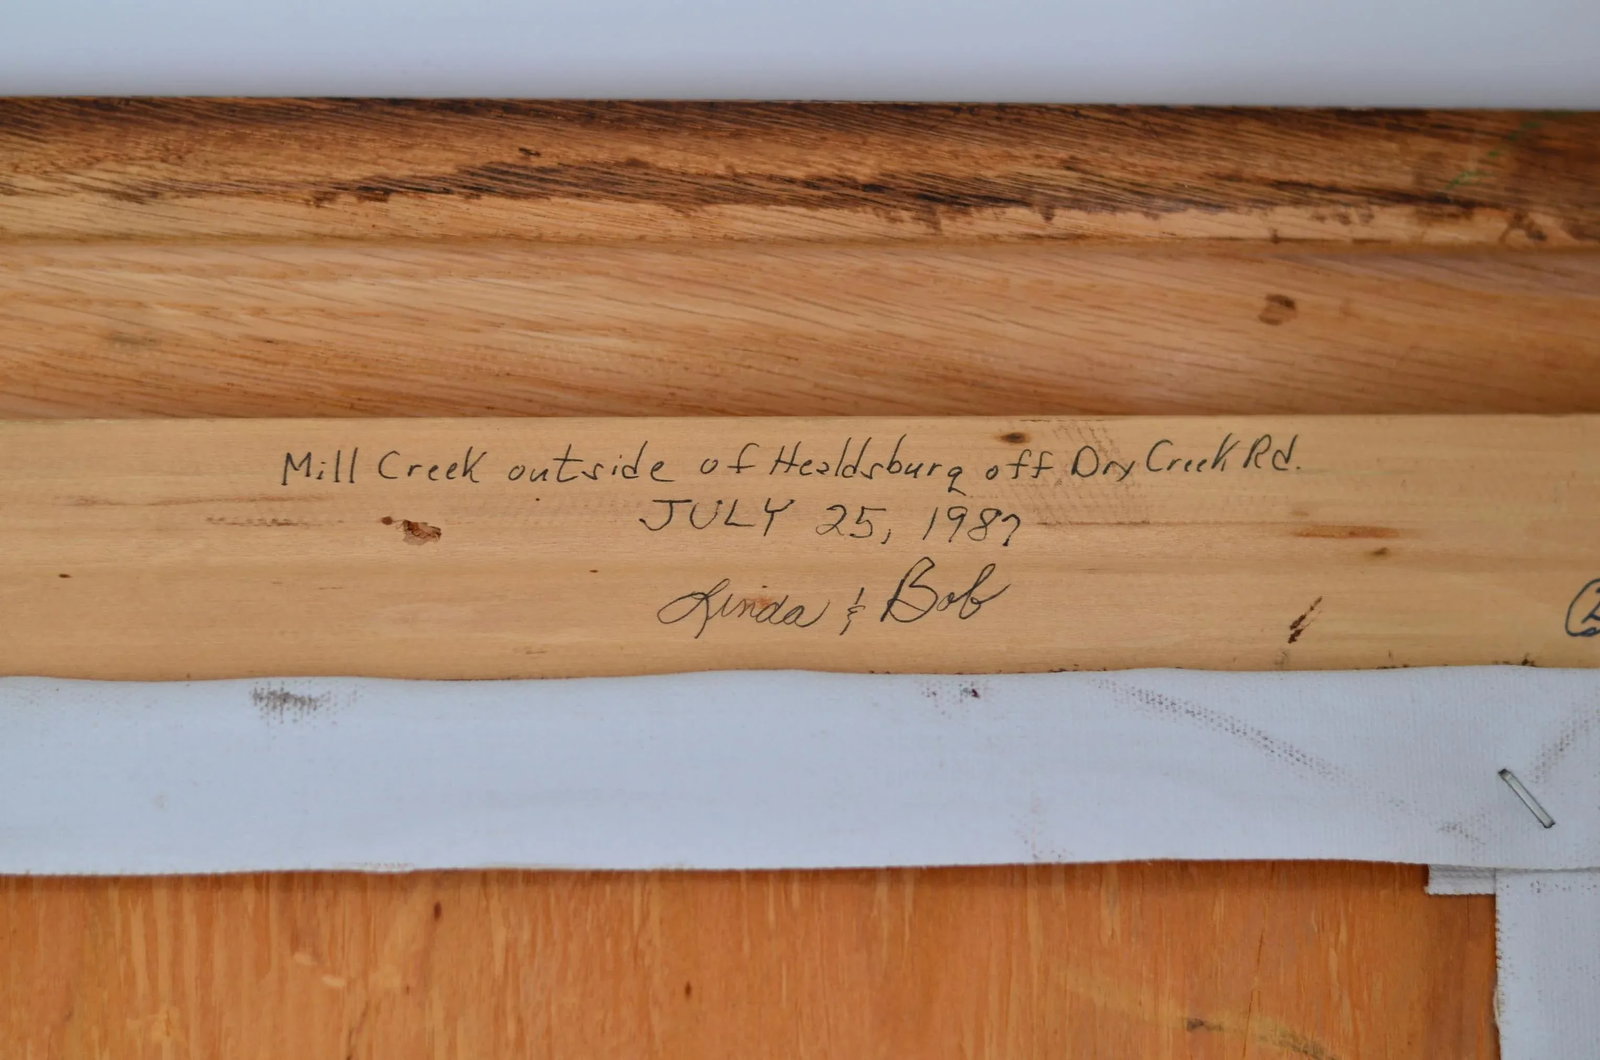 Mill Creek outside of Healdsburg off Dry Creek Rd.
JULY 25, 1987
Linda & Bob